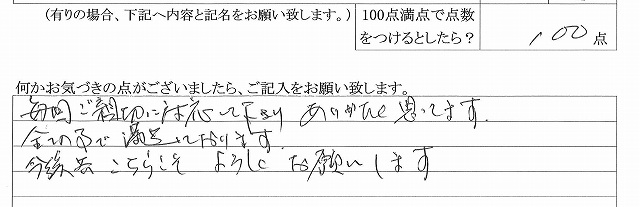 (有りの場合、下記へ内容と記名をお願い致します。)
100点満点で点数
をつけるとしたら?
100点
何かお気づきの点がございましたら、ご記入をお願い致します。
毎回ご親切に対応して下さり ありがたく思ってます.
全ての事で満足しております.
今後共 こちらこそ よろしく お願いします